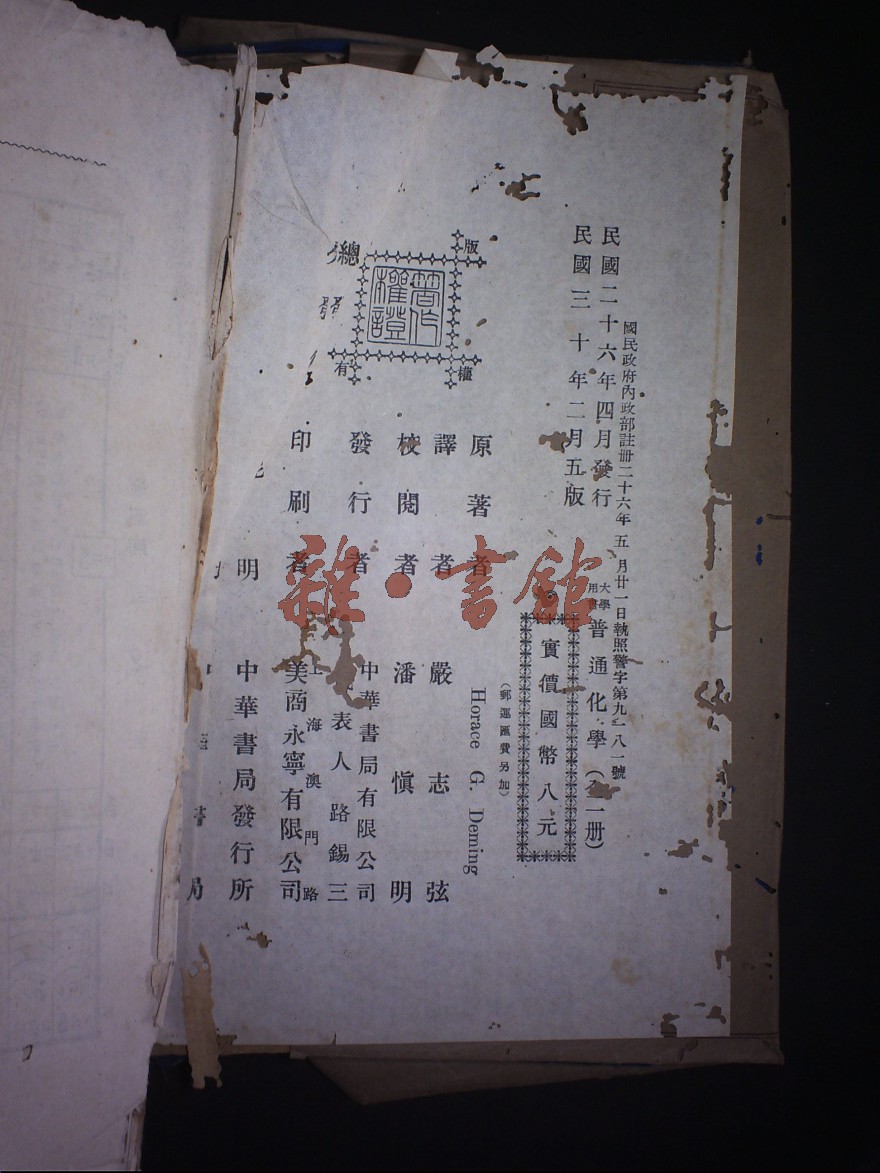 國民政府內政部註册二十六年五月廿一日執照警字第九 八一號
民國二十六年四月發行
民國三十年二月五版
大學用書 普通化學（全一册）
實價國幣八元
（郵運匯費另加）
原著者 Horace G. Deming
譯者 嚴志弦
校閱者 潘慎明
發行者 中華書局有限公司
表人路錫三
印刷者 上海澳門路
美商永寧有限公司
中華書局發行所
版權有
著作權證
總
發
明
書局
雜·書館